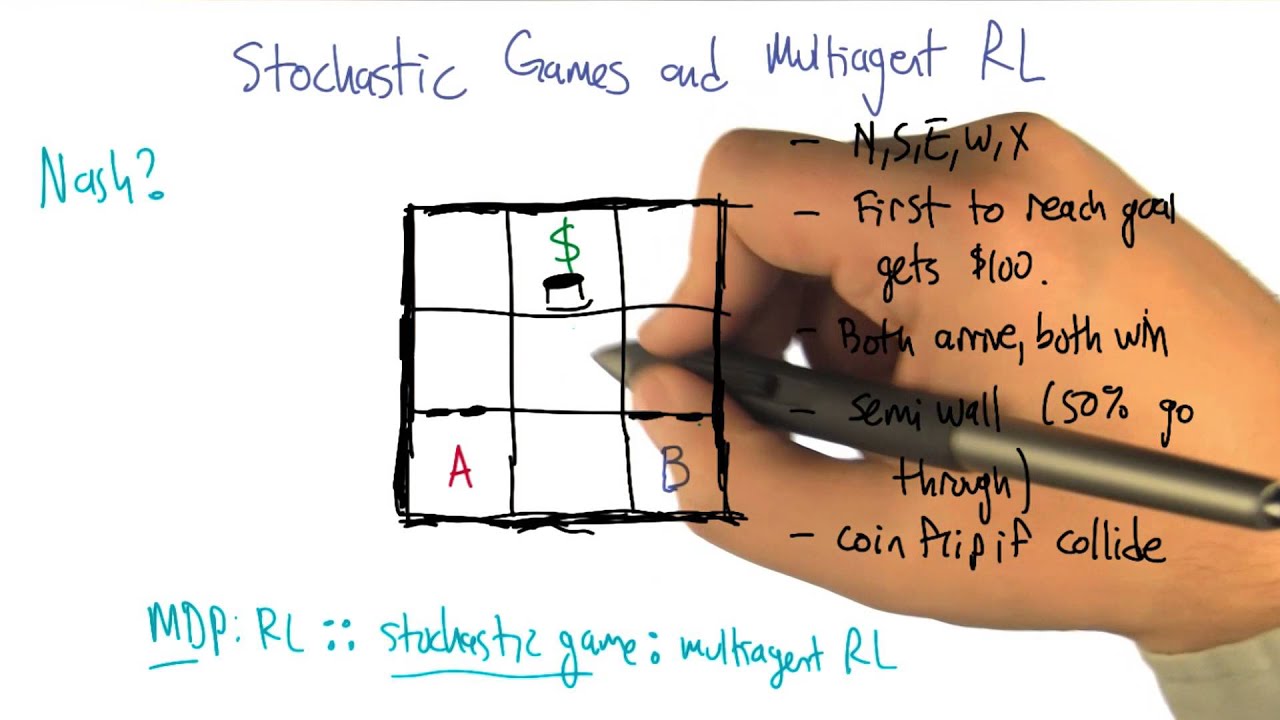 Stochastic Games and Multiagent RL
Nash?
- N,S,E,W,X
- First to reach goal
gets $100.
- Both arrive, both win
- semi wall (50% go
through)
- coin flip if collide
$
A
B
MDP: RL :: stochastic game: multiagent RL